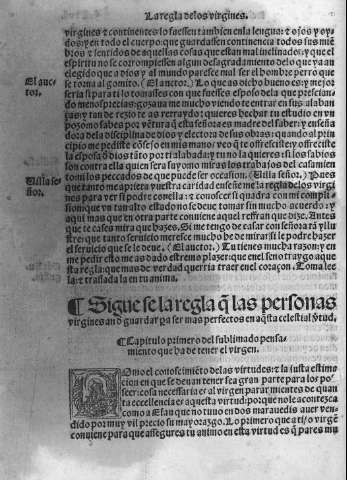 La regla de los virgines.
virgines & continentes lo fuessen tambien en la lengua: & ojos y oy
dos: y en todo el cuerpo: que guardassen continencia todos sus miē
bros & sentidos de aquellas cosas que estan mal inclinados: y que el
espiritu no se corrompiessen algun desagradamiento de lo que ya an
elegido que a dios y al mundo paresce mal ser el hombre perro que
El auc
tor.
se torna al gomito. (El auctor.) Lo que as dicho bueno es: y mejor
seria si para ti lo tomasses con que fuesses esposo de la que presciando
menosprecias: gozaua me mucho viendo te entrar en sus alaban
ças: y tan de rezio te as retraydo: quieres hechar tu estudio en vn
pozo no sabes por vētura q̄ esta señora es madre del saber: y enseña
dora de la disciplina de dios y electora de sus obras: quando al prin
cipio me pediste cōsejo en mis manos: veo q̄ te offresciste y offresciste
la esposa q̄ dios tāto por ti alabada: y tu no la quieres: si los sabios
son contra ella quien sera suyo no miras los trabajos del casamien
to ni los peccados de que puede ser occasion. (Ulilla señor.) Pues
Ulilla se
ñor.
que tanto me aprieta vuestra caridad enseñe me la regla de los virgi
nes para ver si podre con ella: & conoscer si quadra con mi compli-
sion: que vn tan alto estado no se deue tomar sin mucho acuerdo: y
aqui mas que en otra parte conuiene aquel refran que dize. Antes
que te cases mira que hazes. Si me tengo de casar con señora tā yllu
stre: que tanto seruicio meresce mucho he de mirar si le podre hazer
el seruicio que se le deue. (El auctor.) Tu tienes mucha razon: y en
me pedir esto me as dado estremo plazer: que en el seno traygo aque
sta regla: que mas de verdad querria traer en el coraçon. Toma lee
la: & traslada la en tu anima.
¶ Sigue se la regla q̄ las personas
virgines an d̄ guardar pa ser mas perfectos en aq̄sta celestial v̄tud.
¶ Capitulo primero del sublimado pensa-
miento que ha de tener el virgen.
Como el conoscimiēto de las virtudes: & la justa estima
cion en que se deuan tener sea gran parte para los po-
seer: cosa necessaria es al virgen parar mientes de quan
ta excellencia es aquesta virtud: porque no le acontezca
como a Esau que no tuuo en dos marauedis auer ven-
dido por muy vil precio su mayorazgo. Lo primero que a ti / o virgē
conuiene para que assegures tu animo en esta virtud es q̄ pares mu